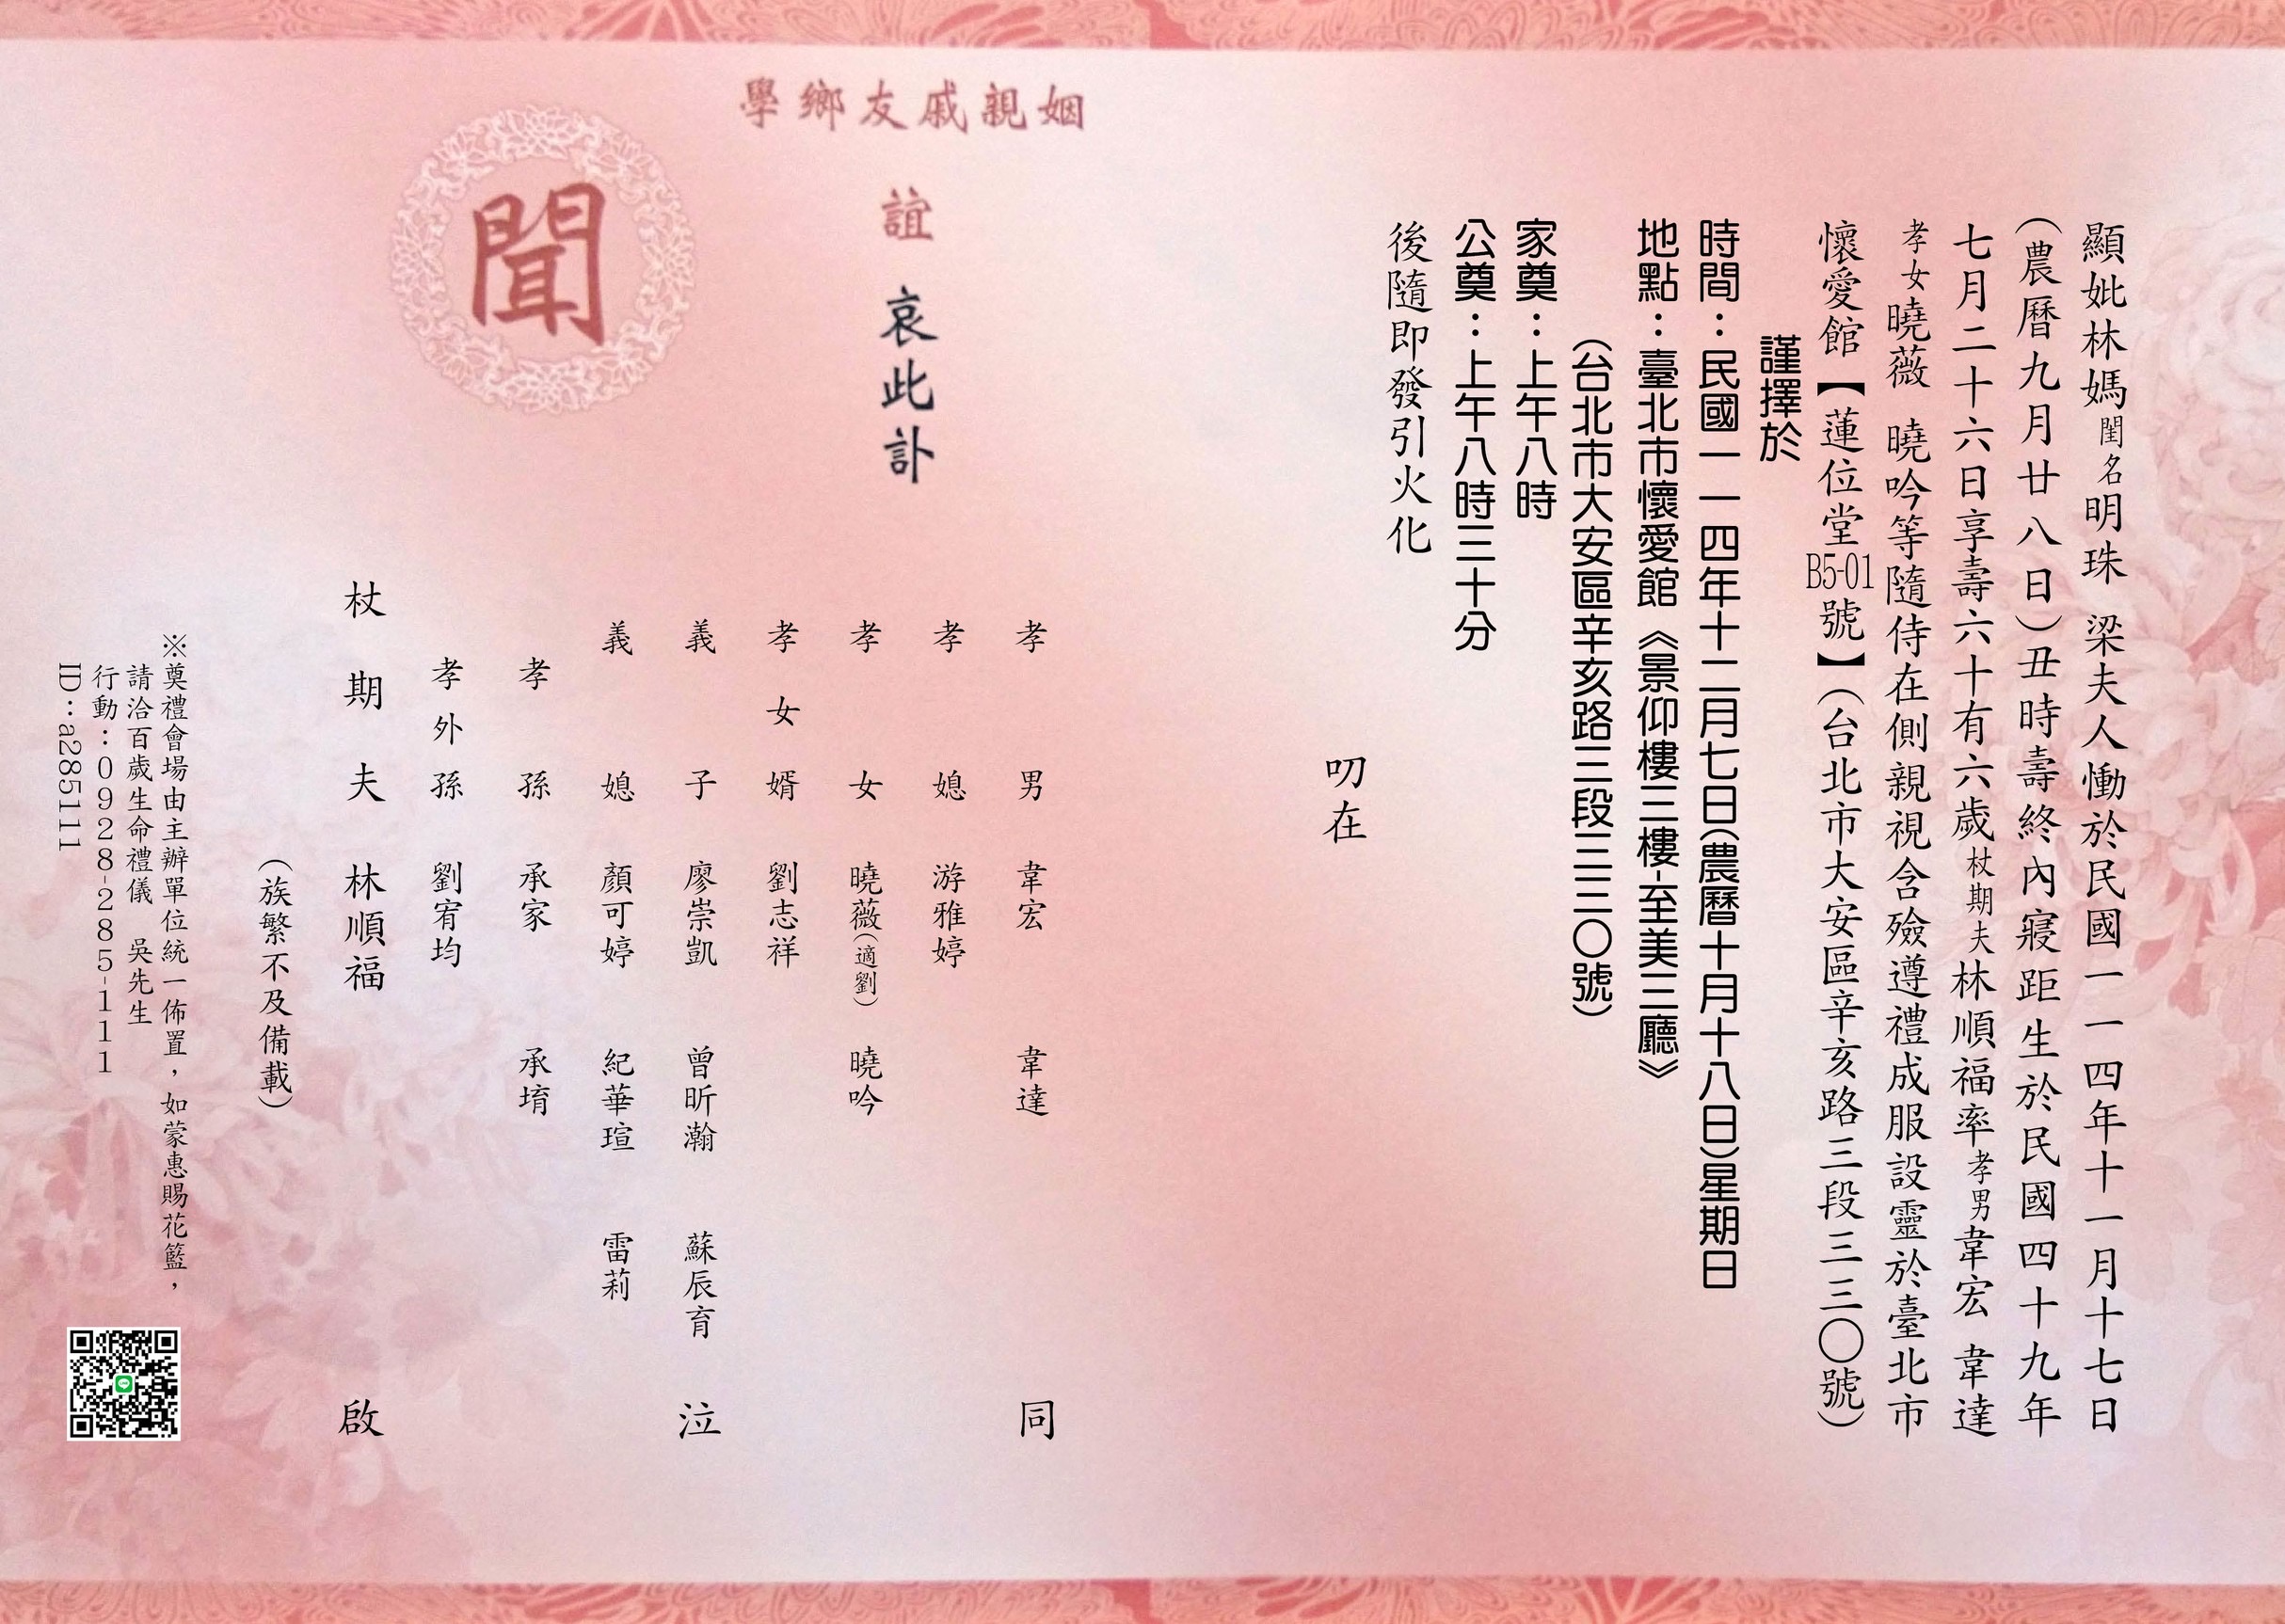 顯妣林媽閨名明珠 梁夫人慟於民國一一四年十一月十七日
(農曆九月廿八日)丑時壽終內寢距生於民國四十九年
七月二十六日享壽六十有六歲杖期夫林順福率孝男韋宏 韋達
孝女曉薇 曉吟等隨侍在側親視含殮遵禮成服設靈於臺北市
懷愛館【蓮位堂B5-01號】(台北市大安區辛亥路三段三三〇號)
謹擇於
時間：民國一一四年十二月七日(農曆十月十八日)星期日
地點：臺北市懷愛館《景仰樓三樓-至美三廳》
(台北市大安區辛亥路三段三三〇號)
家奠：上午八時
公奠：上午八時三十分
後隨即發引火化
叨在
姻親戚友鄉學
誼 哀此訃
聞
孝男 韋宏 韋達
孝媳 游雅婷
孝女 曉薇(適劉) 曉吟
孝女婿 劉志祥
義子 廖崇凱 曾昕瀚 蘇辰育
義媳 顏可婷 紀華瑄 雷莉
孝孫 承家 承堉
孝外孫 劉宥均
杖期夫 林順福
同泣啟
(族繁不及備載)
※奠禮會場由主辦單位統一佈置，如蒙惠賜花籃，
請洽百歲生命禮儀 吳先生
行動：0928-285-111
ID：a285111